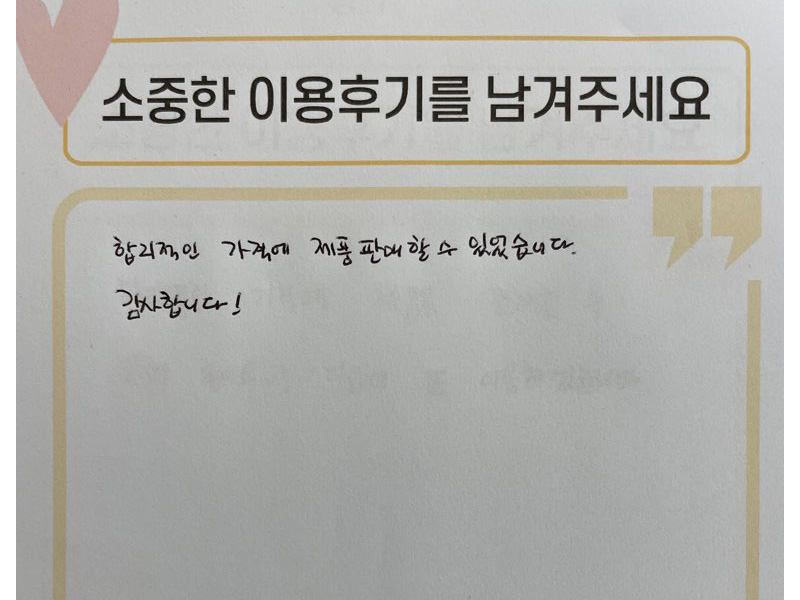 소중한 이용후기를 남겨주세요
합리적인 가격에 제품 판매할 수 있었습니다.
감사합니다!